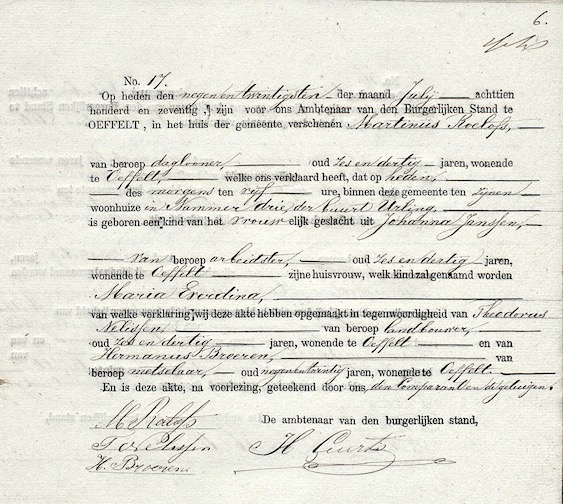 6.
No. 17.
Op heden den negenentwintigsten der maand July achttien
honderd en zeventig, zijn voor ons Ambtenaar van den Burgerlijken Stand te
OEFFELT, in het huis der gemeente verschenen Martinus Roeloss,
van beroep daglooner, oud zes en dertig jaren, wonende
te Oeffelt welke ons verklaard heeft, dat op heden,
des morgens ten vijf ure, binnen deze gemeente ten zijnen
woonhuize in Nummer drie, der buurt Urling,
is geboren een kind van het vrouw elijk geslacht uit Johanna Janssen,
van beroep arbeidster, oud zes en dertig jaren,
wonende te Oeffelt zijne huisvrouw, welk kind zal genaamd worden
Maria Everdina,
van welke verklaring wij deze akte hebben opgemaakt in tegenwoordigheid van Theodorus
Nelissen van beroep landbouwer,
oud zes en dertig jaren, wonende te Oeffelt en van
Hermanus Broeren, van
beroep metselaar, oud negenentwintig jaren, wonende te Oeffelt.
En is deze akte, na voorlezing, geteekend door ons, den Comparant en de getuigen.
M Roeloss De ambtenaar van den burgerlijken stand,
T Nelissen H Geurts
H. Broeren